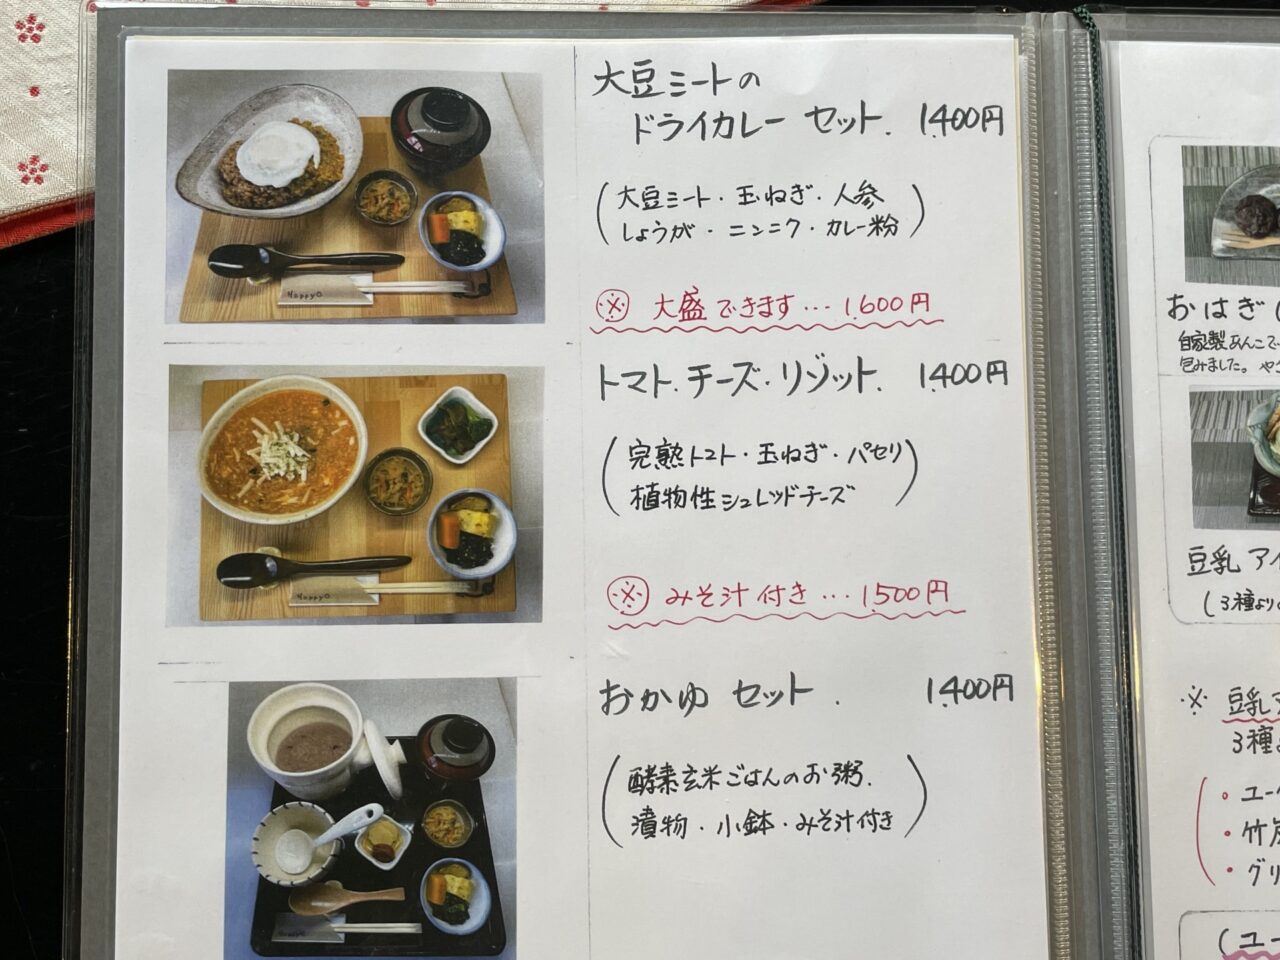 大豆ミートの
ドライカレー セット. 1.400円
(大豆ミート・玉ねぎ・人参
しょうが・ニンニク・カレー粉)
※ 大盛できます…1.600円
トマト.チーズ.リゾット. 1.400円
(完熟トマト・玉ねぎ・パセリ
植物性シュレッドチーズ)
※ みそ汁付き…1.500円
おかゆ セット. 1.400円
(酵素玄米ごはんのお粥.
漬物・小鉢・みそ汁付き)
Happy
Happy
おはぎ(
自家製あんこで
包みました。
豆乳アイ
(3種より
※ 豆乳ア
3種
・ユー
・竹炭
・グリ
(ユー